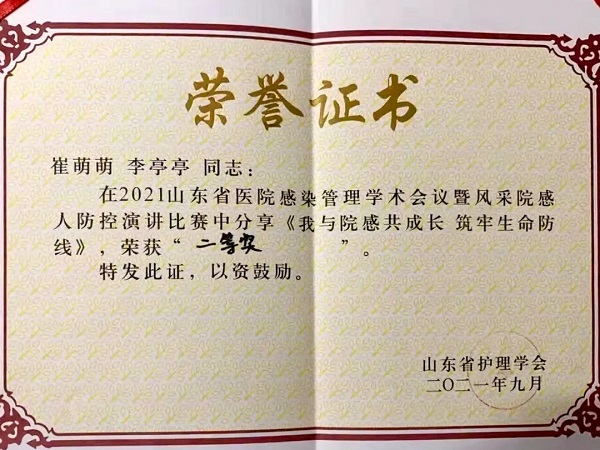 荣誉证书
崔萌萌 李亭亭 同志：
在2021山东省医院感染管理学术会议暨风采院感
人防控演讲比赛中分享《我与院感共成长 筑牢生命防
线》，荣获“ 二等奖 ”。
特发此证，以资鼓励。
山东省护理学会
二〇二一年九月